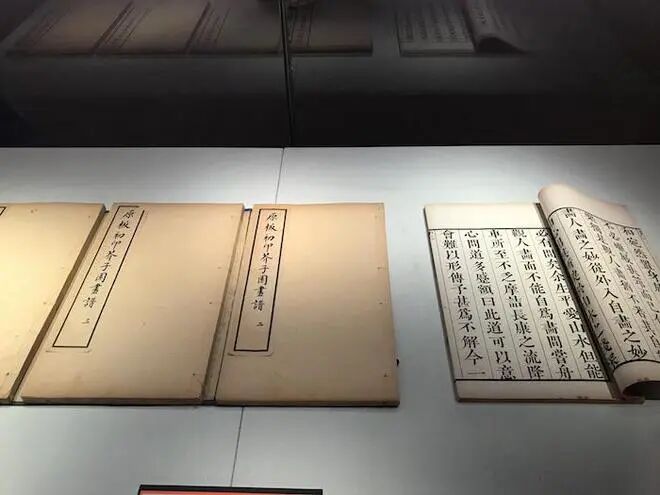 何
畫人畫之妙從外入自畫之妙
必有間矣余生平愛山水但能
觀人畫而不能自爲畫間嘗舟
車所至不乏摩詰長康之流降
心問道多蹙額曰此道可以意
會難以形傳予甚爲不解今一
原板初印芥子園畫譜 二
原板初印芥子園畫譜 三